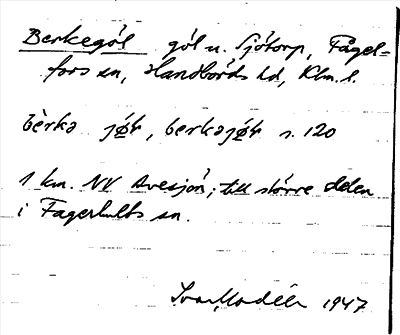 Berkegöl göl u. Sjötorp, Fågel=
fors sn, Handbörds hd, Klm. l.
bèrkə jø̀t, berkəjø̀t s. 120
1 km. NV Avesjön; till större delen
i Fagerhults sn.
Ivar Modéer 1947